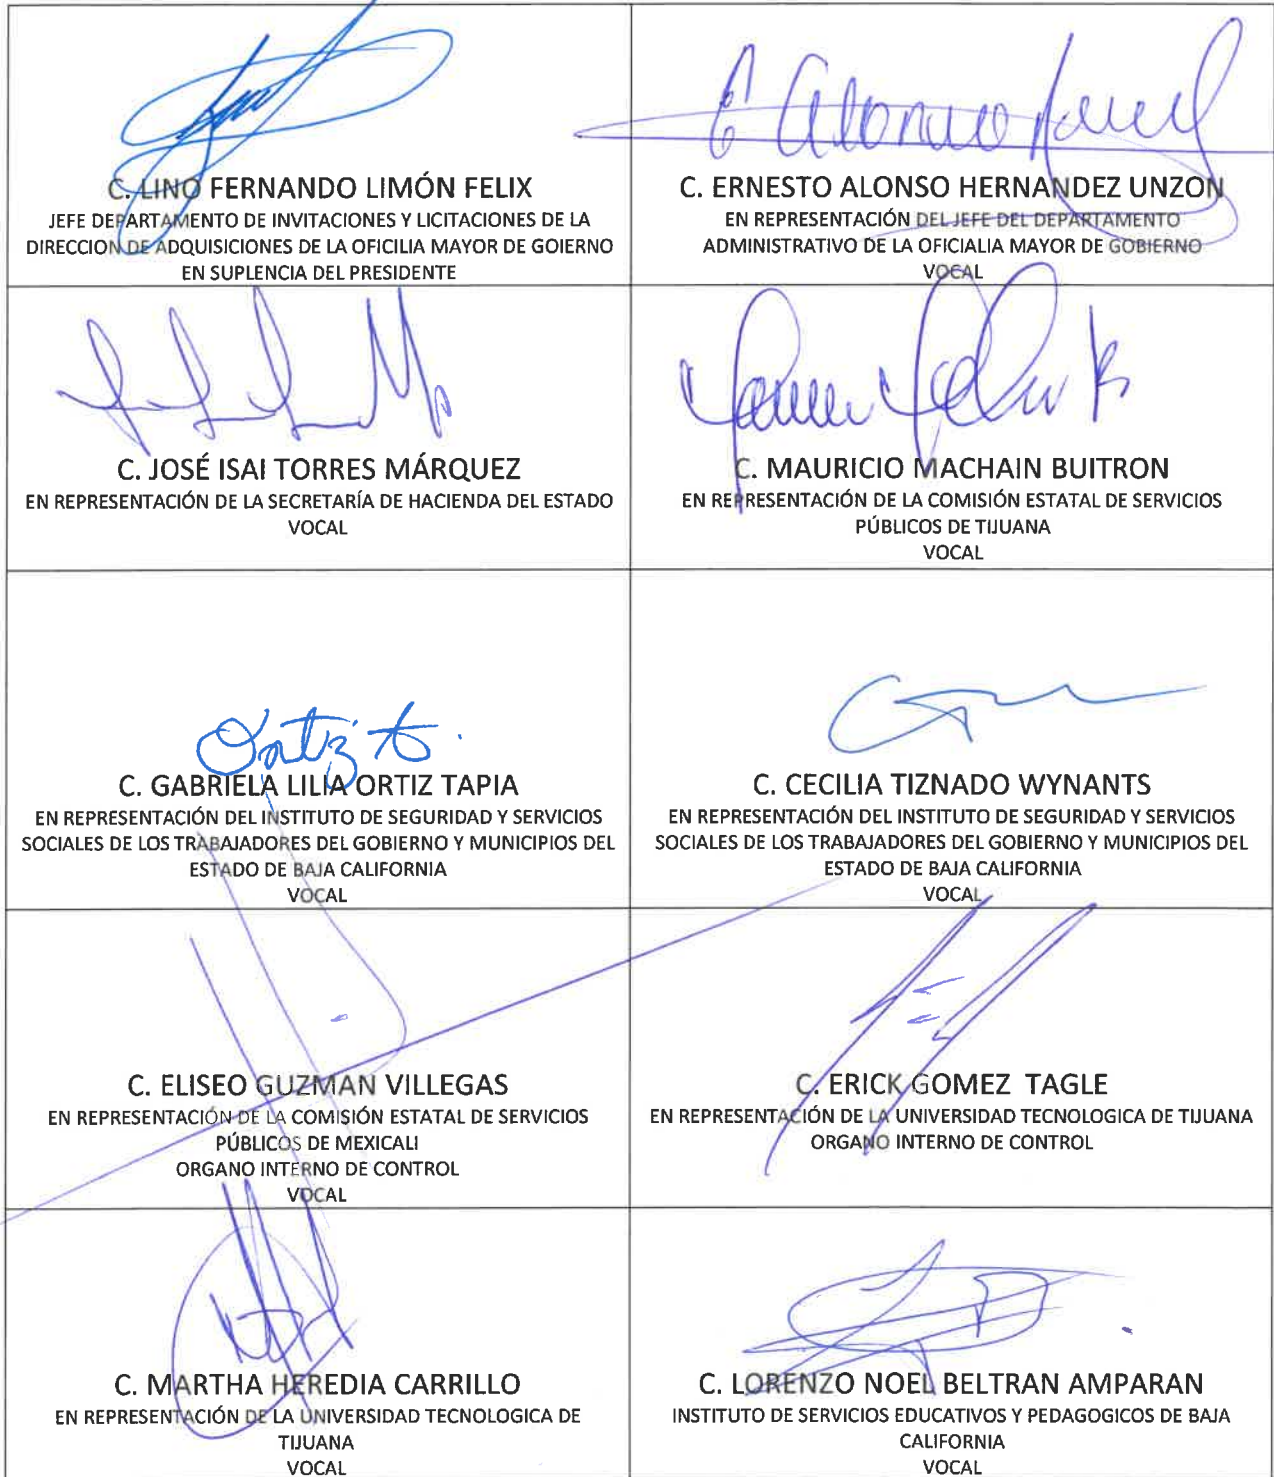 C. LINO FERNANDO LIMÓN FELIX
JEFE DEPARTAMENTO DE INVITACIONES Y LICITACIONES DE LA
DIRECCION DE ADQUISICIONES DE LA OFICILIA MAYOR DE GOIERNO
EN SUPLENCIA DEL PRESIDENTE
C. ERNESTO ALONSO HERNANDEZ UNZON
EN REPRESENTACIÓN DEL JEFE DEL DEPARTAMENTO
ADMINISTRATIVO DE LA OFICIALIA MAYOR DE GOBIERNO
VOCAL
C. JOSÉ ISAI TORRES MÁRQUEZ
EN REPRESENTACIÓN DE LA SECRETARÍA DE HACIENDA DEL ESTADO
VOCAL
C. MAURICIO MACHAIN BUITRON
EN REPRESENTACIÓN DE LA COMISIÓN ESTATAL DE SERVICIOS
PÚBLICOS DE TIJUANA
VOCAL
Ortiz t.
C. GABRIELA LILIA ORTIZ TAPIA
EN REPRESENTACIÓN DEL INSTITUTO DE SEGURIDAD Y SERVICIOS
SOCIALES DE LOS TRABAJADORES DEL GOBIERNO Y MUNICIPIOS DEL
ESTADO DE BAJA CALIFORNIA
VOCAL
C. CECILIA TIZNADO WYNANTS
EN REPRESENTACIÓN DEL INSTITUTO DE SEGURIDAD Y SERVICIOS
SOCIALES DE LOS TRABAJADORES DEL GOBIERNO Y MUNICIPIOS DEL
ESTADO DE BAJA CALIFORNIA
VOCAL
C. ELISEO GUZMAN VILLEGAS
EN REPRESENTACIÓN DE LA COMISIÓN ESTATAL DE SERVICIOS
PÚBLICOS DE MEXICALI
ORGANO INTERNO DE CONTROL
VOCAL
C. ERICK GOMEZ TAGLE
EN REPRESENTACIÓN DE LA UNIVERSIDAD TECNOLOGICA DE TIJUANA
ORGANO INTERNO DE CONTROL
C. MARTHA HEREDIA CARRILLO
EN REPRESENTACIÓN DE LA UNIVERSIDAD TECNOLOGICA DE
TIJUANA
VOCAL
C. LORENZO NOEL BELTRAN AMPARAN
INSTITUTO DE SERVICIOS EDUCATIVOS Y PEDAGOGICOS DE BAJA
CALIFORNIA
VOCAL